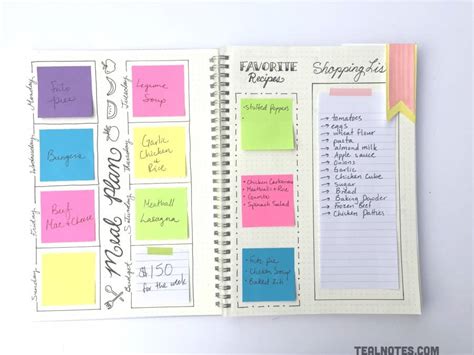 Monday
Frito
pie
Tuesday
Legume
Soup
Wednesday
Burgers
Thursday
Garlic
Chicken &
Rice
Friday
Beef
Mac & Cheese
Saturday
Meatball
Lasagna
Sunday
Budget
$150
for the week
Meal Plan
FAVORITE
Recipes
Stuffed Peppers
Chicken Carbonara
Meatballs & Rice
Spinach Salad
Frito pie
Chicken Soup
Baked Ziti
Shopping Lis
tomatoes
eggs
wheat flour
pasta
almond milk
Apple sauce
Onions
garlic
Chicken Cube
Sugar
Bread
Baking Powder
Frozen Beef
Chicken Patties
TEALNOTES.COM